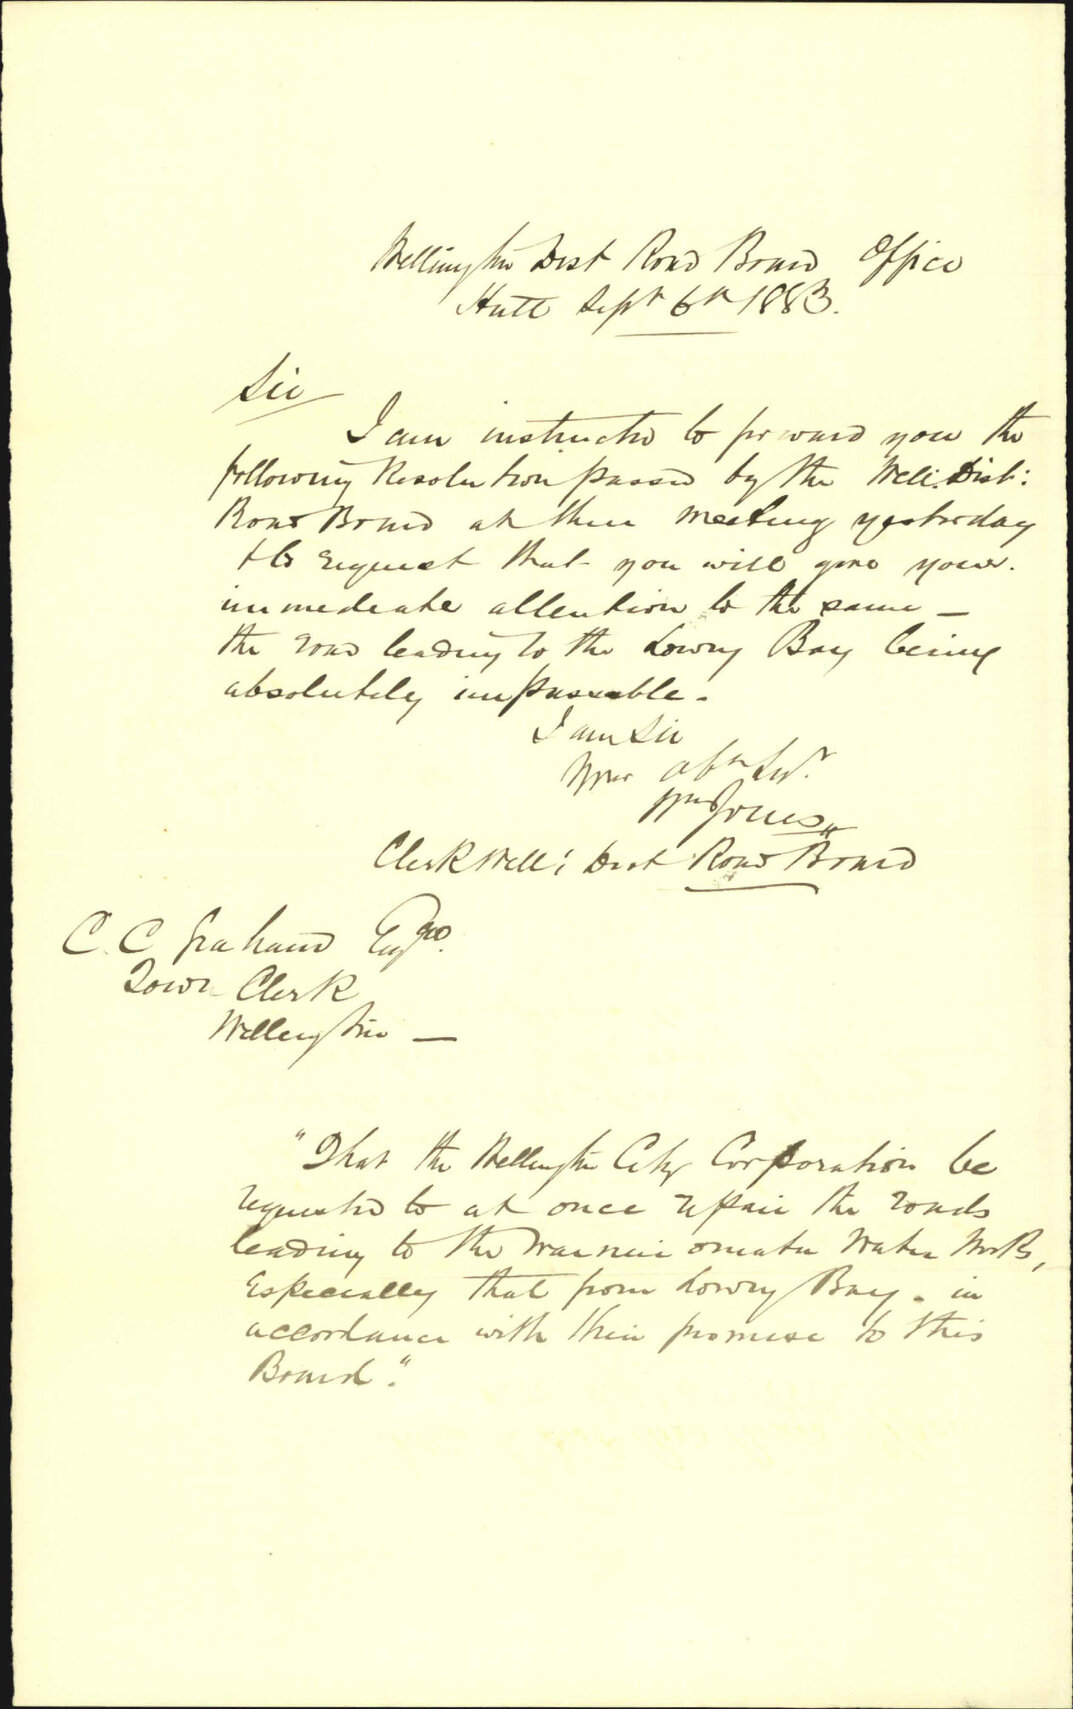 Wellington Dist Road Board Office
Hutt Sept 6th 1883.
Sir
I am instructed to forward you the
following Resolution passed by the Well: Dist:
Road Board at their meeting yesterday
& to request that you will give your
immediate attention to the same —
the road leading to the Lowry Bay being
absolutely impassable.
I am Sir
Your obt Svt
Wm Jones
Clerk Well: Dist Road Board
C. C. Graham Esqre.
Town Clerk
Wellington —
"That the Wellington City Corporation be
requested to at once repair the roads
leading to the Wainuiomata Water Works,
Especially that from Lowry Bay. in
accordance with their promise to this
Board."